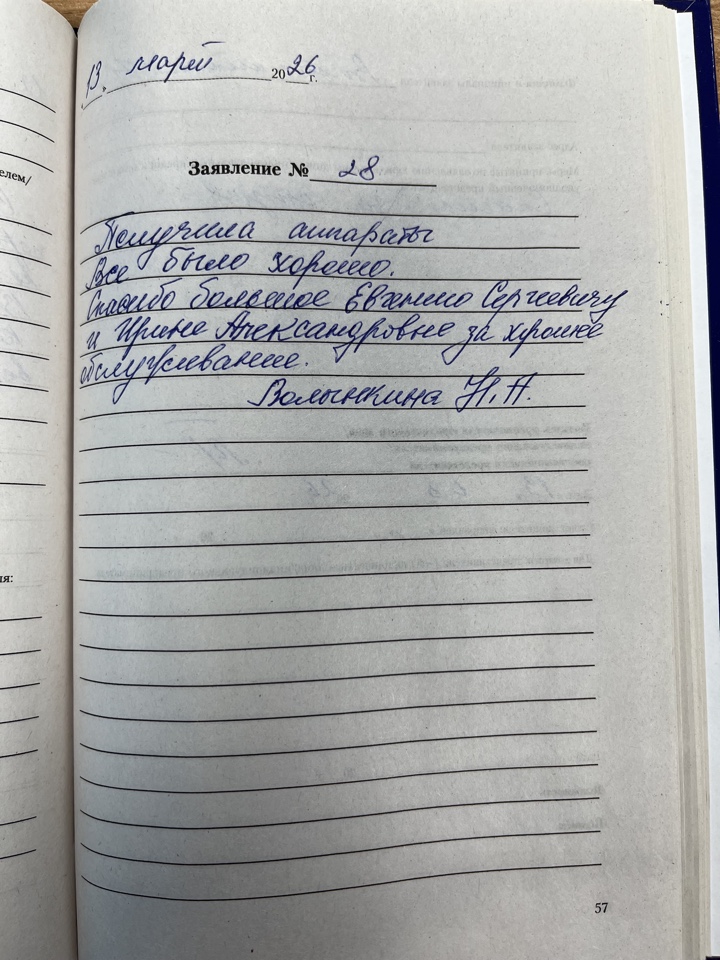 13. март 2026 г.
Заявление № 28
елем/
Получила аппараты
Все было хорошо.
Спасибо большое Евгению Сергеевичу
и Ирине Александровне за хорошее
обслуживание.
Волынкина Н.А.
ия:
57